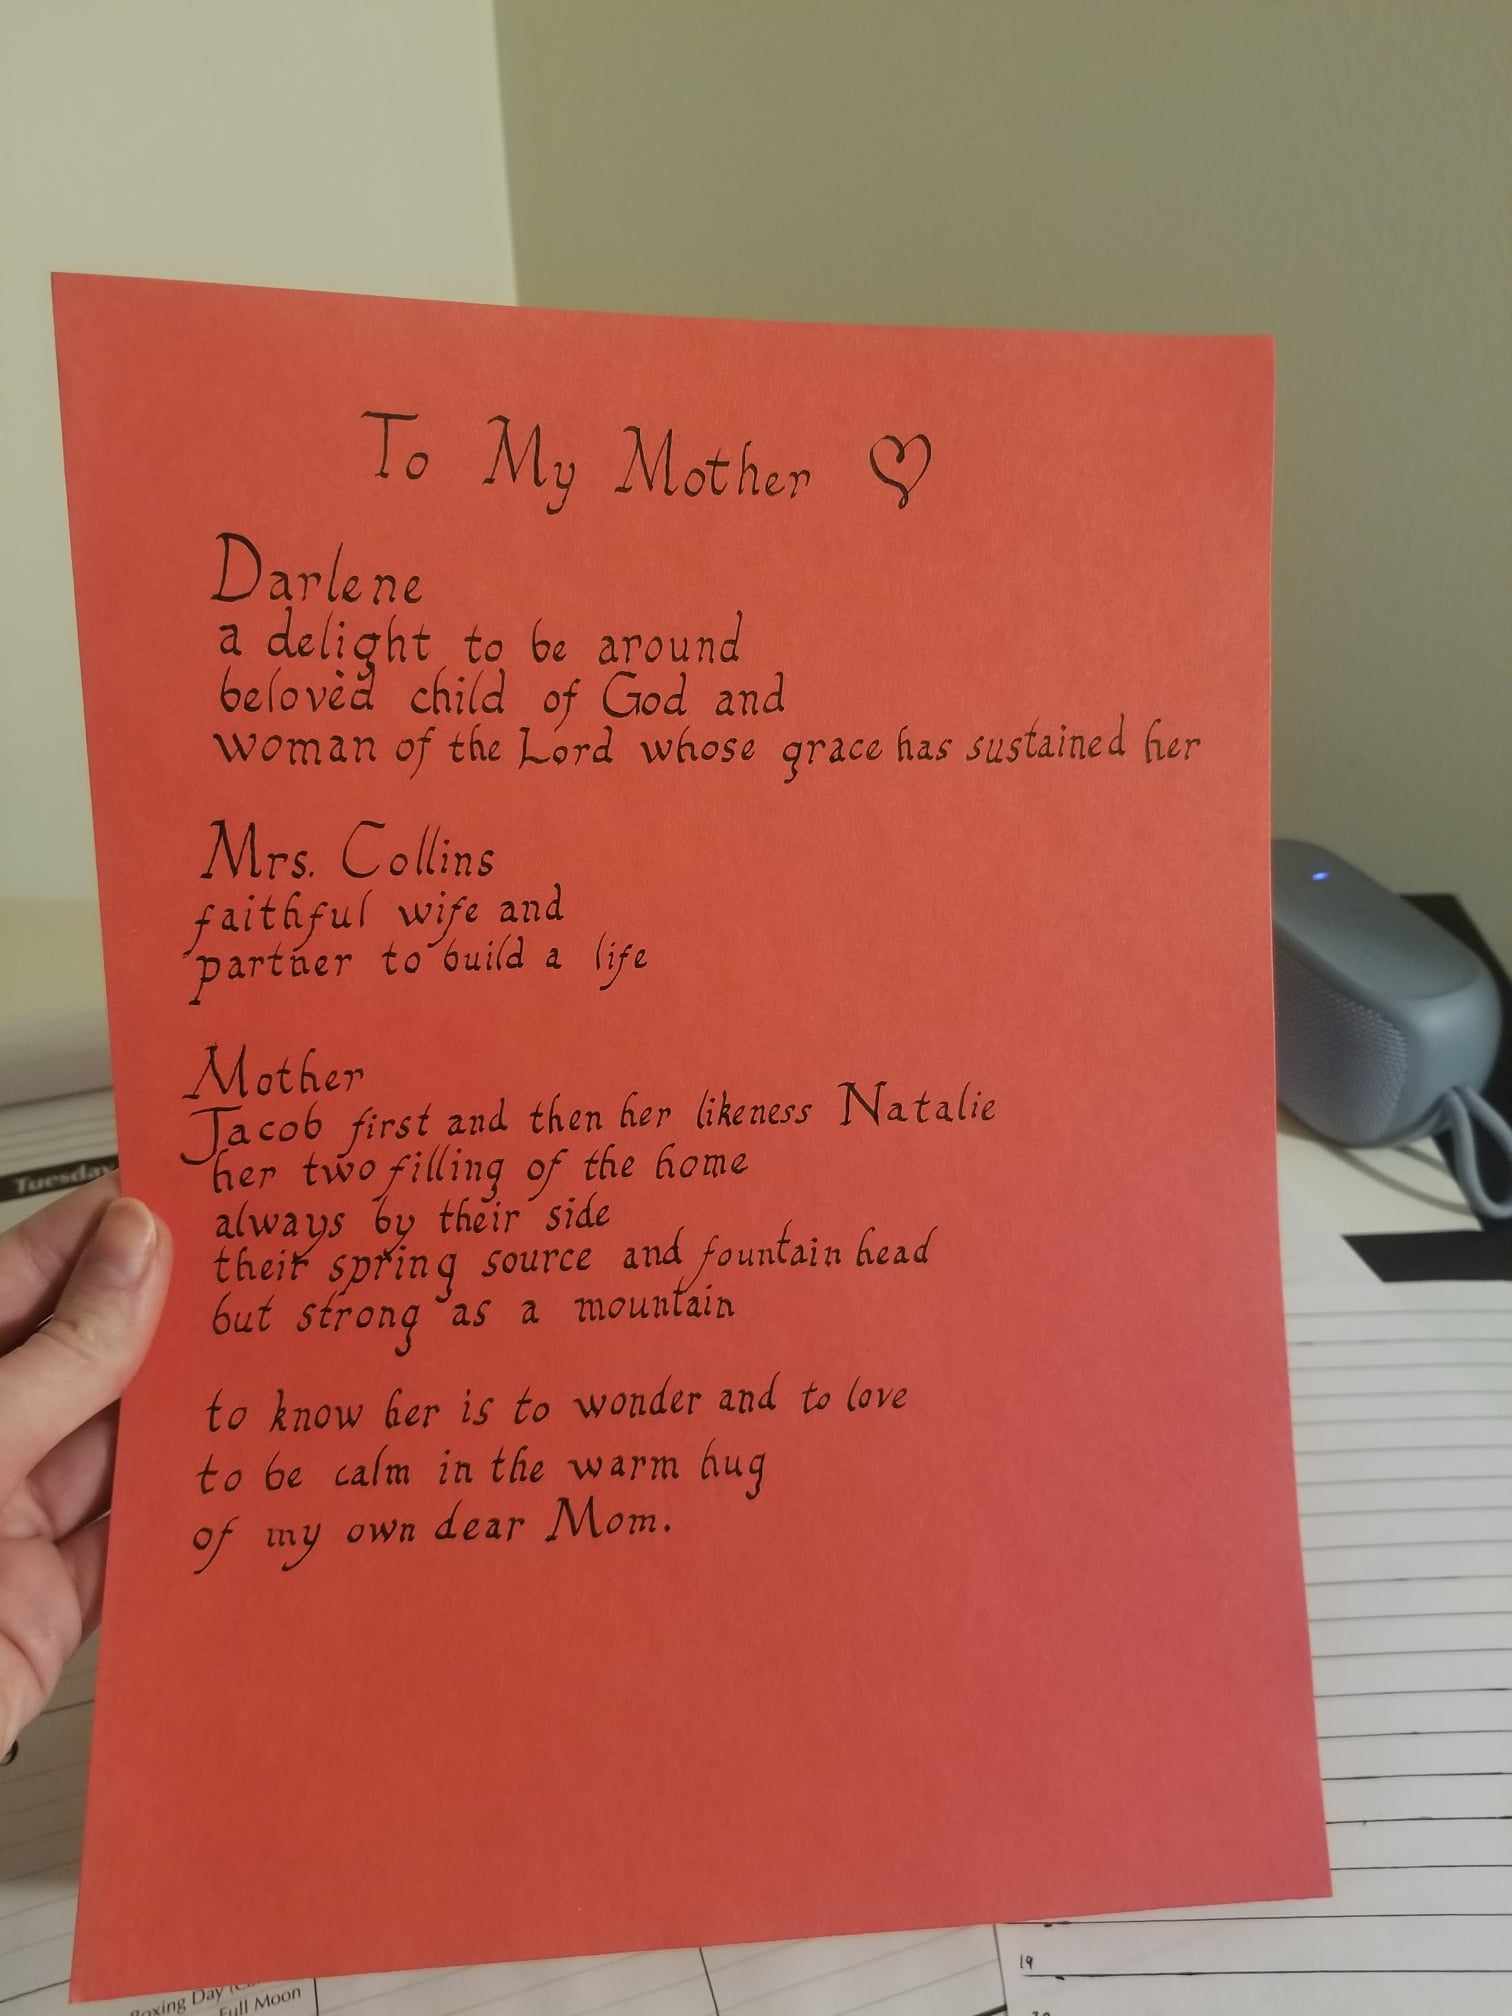 To My Mother ♡
Darlene
a delight to be around
beloved child of God and
woman of the Lord whose grace has sustained her
Mrs. Collins
faithful wife and
partner to build a life
Mother
Jacob first and then her likeness Natalie
her two filling of the home
always by their side
their spring source and fountain head
but strong as a mountain
to know her is to wonder and to love
to be calm in the warm hug
of my own dear Mom.
Tuesday
Boxing Day
Full Moon
19